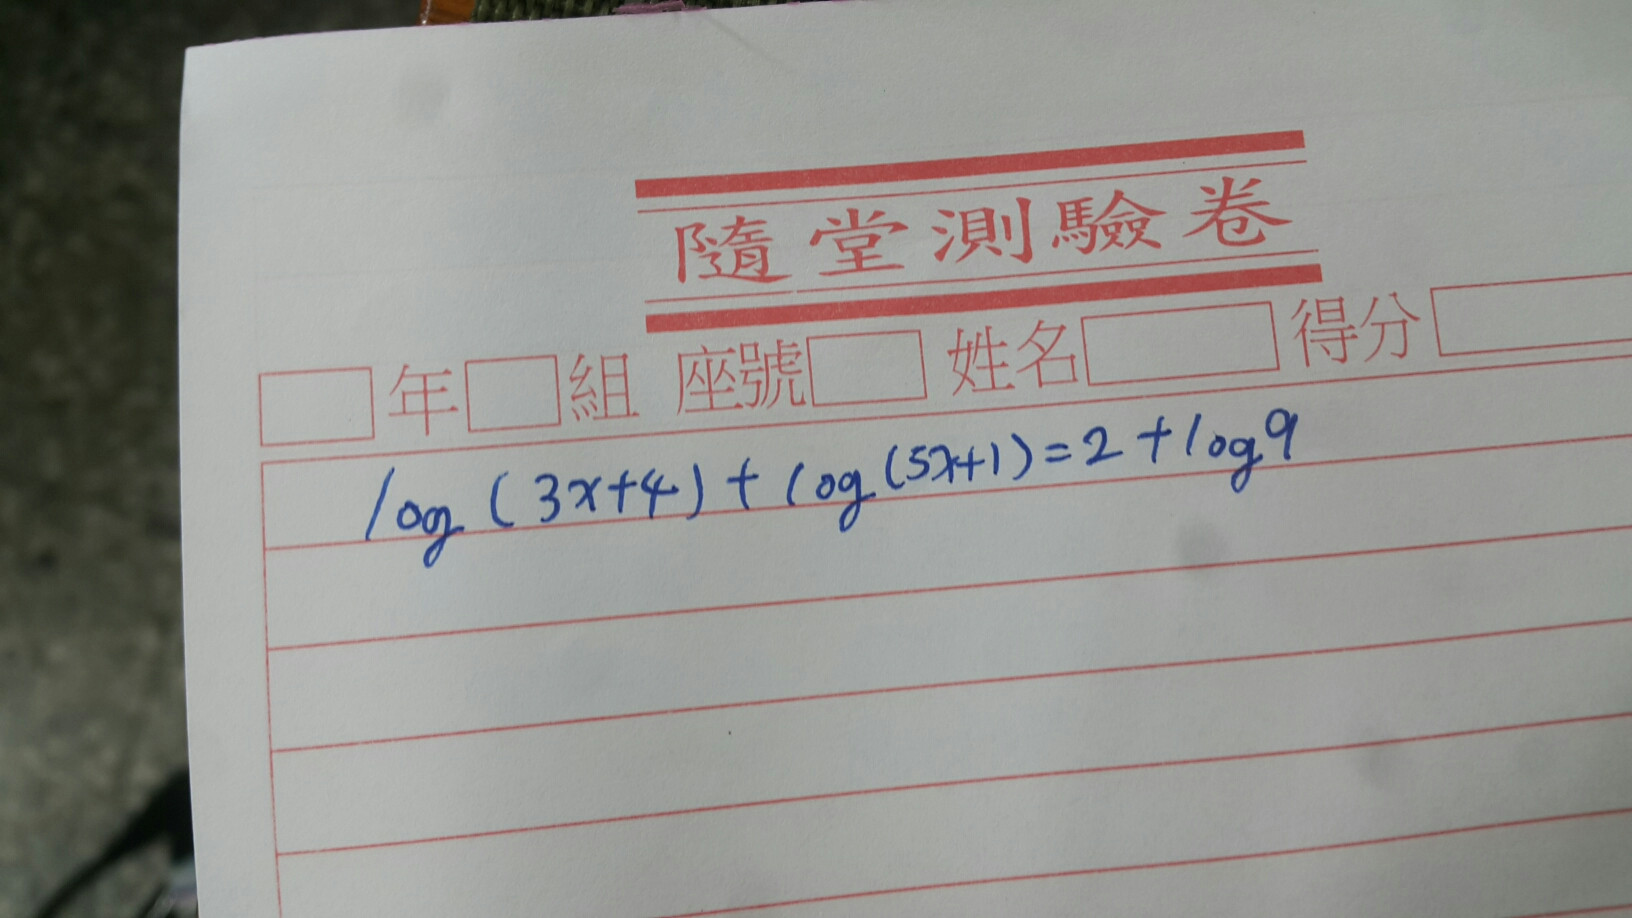 隨堂測驗卷
年 組 座號 姓名 得分
log (3x+4) + log (5x+1) = 2 + log 9